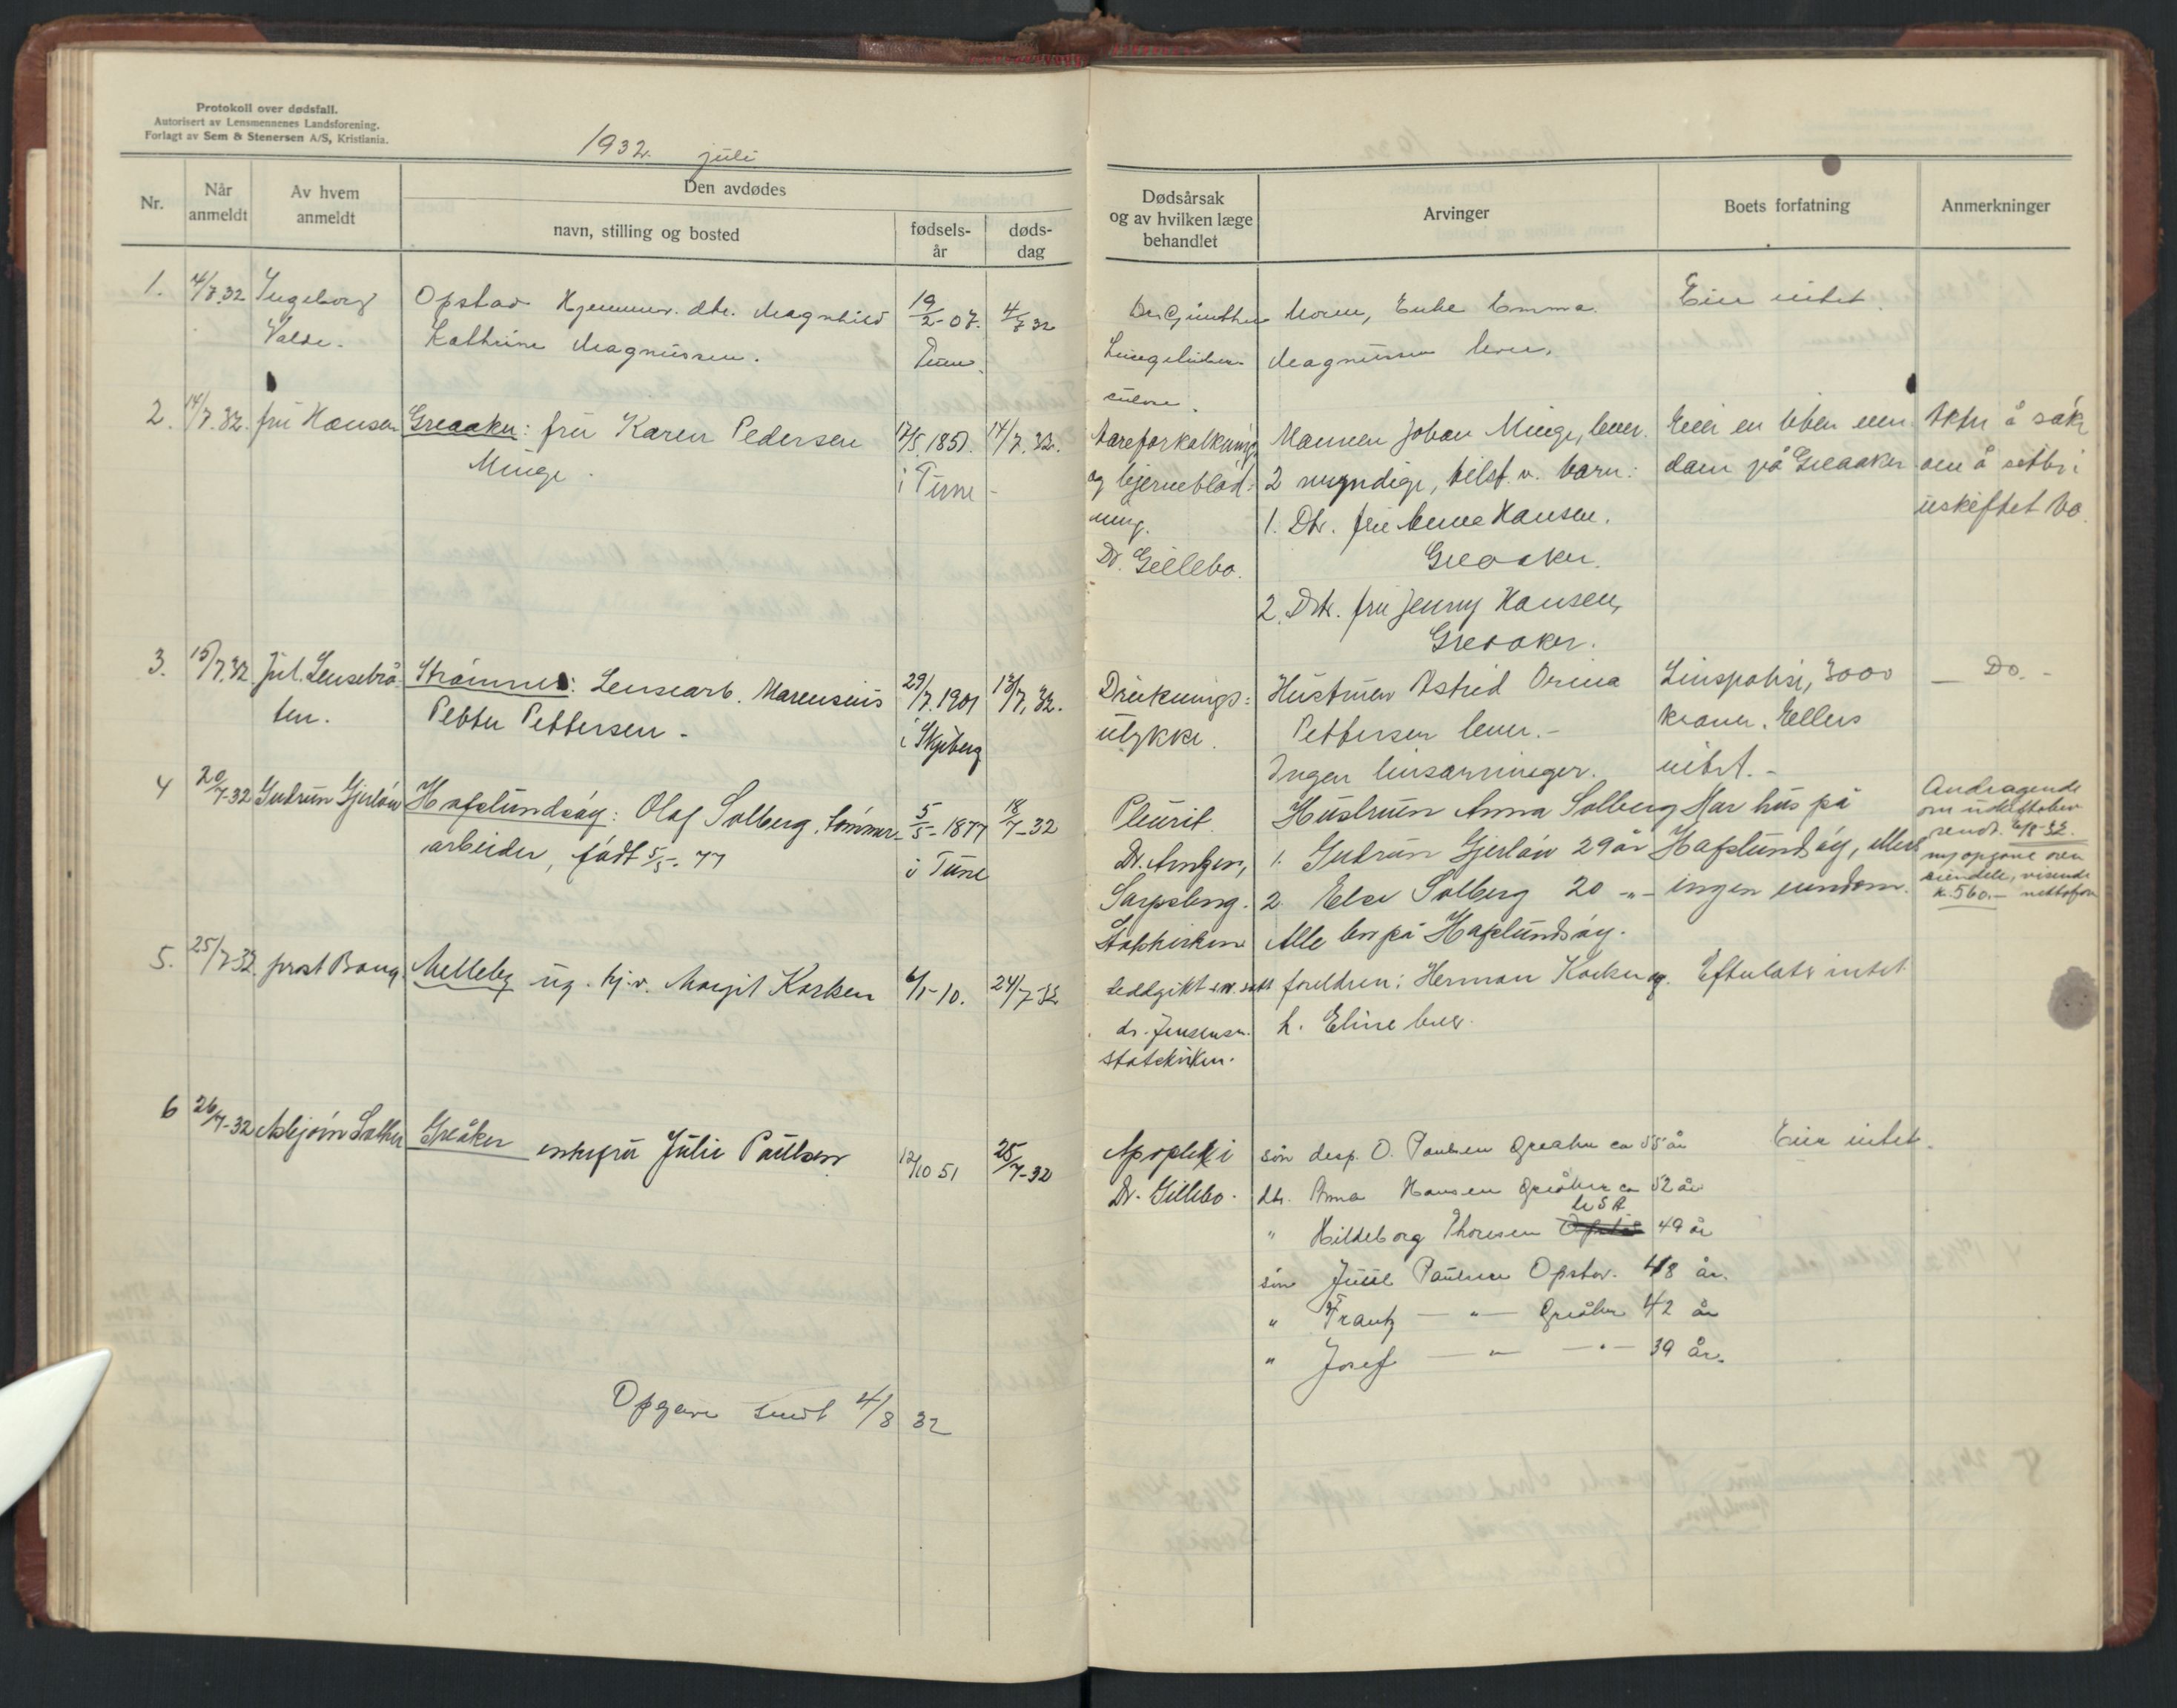 Protokoll over dødsfall.
Autorisert av Lensmennenes Landsforening.
Forlagt av Sem & Stenersen A/S, Kristiania.
1932. juli
Nr.
Når anmeldt
Av hvem anmeldt
Den avdødes
navn, stilling og bosted
fødsels-
år
døds-
dag
Dødsårsak
og av hvilken læge
behandlet
Arvinger
Boets forfatning
Anmerkninger
1. 4/7.32 Ingeborg Opstad Hjemmev. dtr. Magnhild 19/2-07. 4/7 32
Valde. Kathrine Magnussen. Tune.
Dr. Günther Moren, Enke Emma Eier intet.
Lungetuber- Magnussen lever.
culose.
2. 14/7.32. fru Hansen Greaaker: fru Karen Pedersen 17/5.1851. 14/7.32.
Minge. i Tune -
Aareforkalkning Mannen Johan Minge, lever. Eier en liten eien Akter å søke
og hjerneblød- 2 myndige, tilst. v. barn: dom på Greaaker om å sitte i
ning. 1. Dtr. fru Hansen, uskiftet bo.
Dr. Gillebo. Greaaker.
2. Dtr. fru Jenny Hansen,
Greaaker.
3. 15/7.32 Jul. Lensebrå- Strømnes: Lensearb. Marensius 29/7.1901 13/7.32.
ten. Petter Pettersen - i Skjeberg
Druknings- Hustruen Astrid Orina Livspolise, 3000 — Do. -
ulykke. Pettersen lever. - kroner. Ellers
Ingen livsarvinger. intet. -
4 20/7-32 Gudrun Gjerløw Hafslundsøy: Olaf Solberg, tømmer- 5/5-1877 18/7-32
arbeider, født 5/5-77 i Tune
Pleurit. Hustruen Anna Solberg Har hus på
Dr. Arntzen, 1. Gudrun Gjerløw 29 år Hafslundsøy, ellers
Sarpsborg. 2. Else Solberg 20 -"- ingen eiendom.
Statskirken Alle bor på Hafslundsøy.
Andragende
om uskiftebev
sendt. 6/8-32.
opgave over
eiendele, visende
k. 560.- nettoform
5. 25/7-32. prost Bang. Melleby ug. hj.v. Margit Korken 6/1-10. 24/7-32
Leddgikt foreldrene: Herman Korken og. Efterlater intet.
dr. Jensen h. Eline lever.
statskirken.
6 26/7-32 Asbjørn Sæther Greåker enkefru Julie Paulsen 12/10 51 25/7-32
Apoplexi søn desp. O. Paulsen Greaker ca 55 år Eier intet.
Dr. Gillebo. dtr. Anna Hansen Greåker ca 52 år
USA
" Hildeborg Thoresen 49 år
søn Juul Paulsen Opstad. 48 år.
" Frantz — " — Greåker 42 år
" Josef — " — — " — 39 år.
Opgave sendt 4/8 32